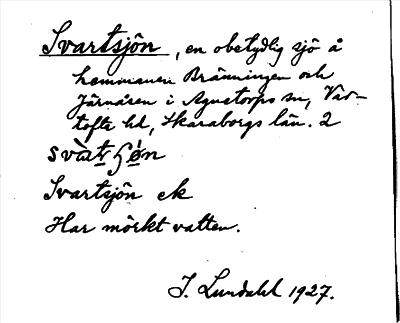 Svartsjön, en obetydlig sjö å
hemmanen Bränningen och
Järnåsen i Agnetorps sn, Vår-
tofta hd, Skaraborgs län. 2
Svartsjön ek
Har mörkt vatten.
J. Lundahl 1927.